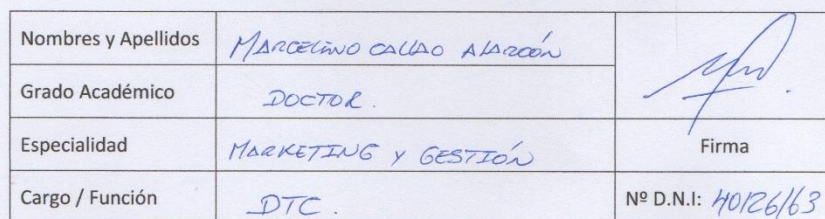 Nombres y Apellidos MARCELINO CALLAO ALARCÓN
Grado Académico DOCTOR.
Especialidad MARKETING Y GESTIÓN
Firma
Cargo / Función DTC.
Nº D.N.I: 40126163